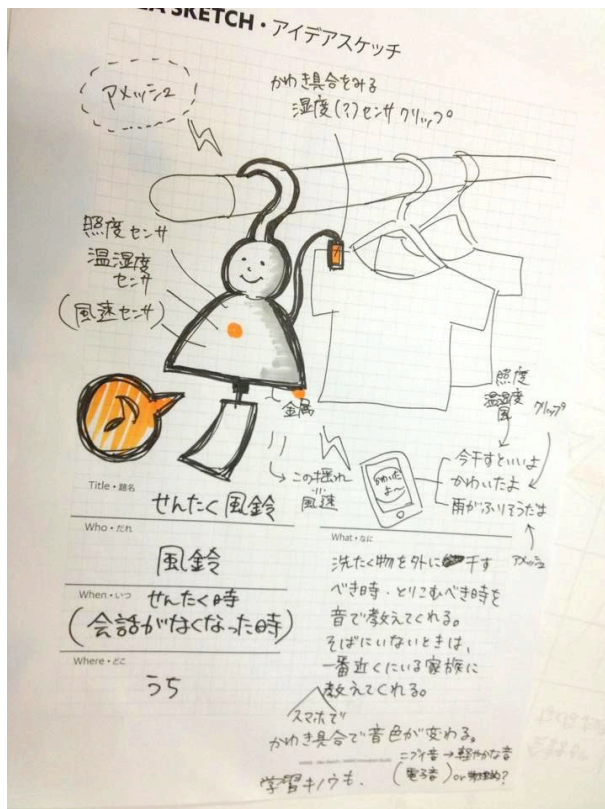 SKETCH・アイデアスケッチ
アメッシュ
かわき具合をみる
湿度(?)センサクリップ
照度センサ
温湿度
センサ
(風速センサ)
金属
→この揺れ
風速
照度
温湿度
風
クリップ
かわいた
よ〜
今干すといいよ
かわいたよ
雨がふりそうだよ
アメッシュ
Title・題名
せんたく風鈴
Who・だれ
風鈴
When・いつ
せんたく時
(会話がなくなった時)
Where・どこ
うち
What・なに
洗たく物を外に干す
べき時・とりこむべき時を
音で教えてくれる。
そばにいないときは、
一番近くにいる家族に
教えてくれる。
スマホで
かわき具合で音色が変わる。
ニブイ音→軽やかな音
(電子音) or 物理的?
学習キノウも.